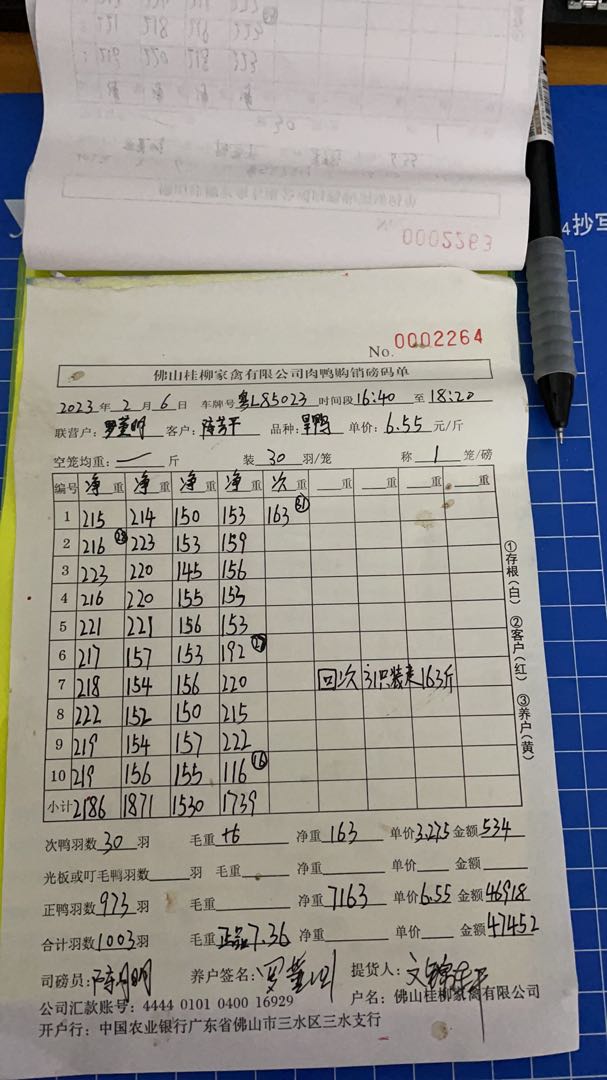 0002263
4抄写
No. 0002264
佛山桂柳家禽有限公司肉鸭购销磅码单
2023年2月6日 车牌号 粤L85023 时间段 16:40 至 18:20
联营户: 客户: 品种: 旱鸭 单价: 6.55 元/斤
空笼均重: 一 斤 装 30 羽/笼 称 1 笼/磅
编号 净重 净重 净重 净重 次重 重 重 重 重
1 215 214 150 153 163 31
2 216 28 223 153 159
3 223 220 145 156
4 216 220 155 153
5 221 221 156 153
6 217 157 153 192 27
7 218 154 156 220 回次 31只装走163斤
8 222 152 150 215
9 219 154 157 222
10 219 156 155 116 16
小计 2186 1871 1530 1739
①存根(白) ②客户(红) ③养户(黄)
次鸭羽数 30 羽 毛重 +6 净重 163 单价 3.275 金额 534
光板或叮毛鸭羽数 羽 毛重 净重 单价 金额
正鸭羽数 973 羽 毛重 净重 7163 单价 6.55 金额 46918
合计羽数 1003 羽 毛重 正品7.36 净重 单价 金额 47452
司磅员: 养户签名: 提货人:
公司汇款账号: 4444 0101 0400 16929 户名: 佛山桂柳家禽有限公司
开户行: 中国农业银行广东省佛山市三水区三水支行